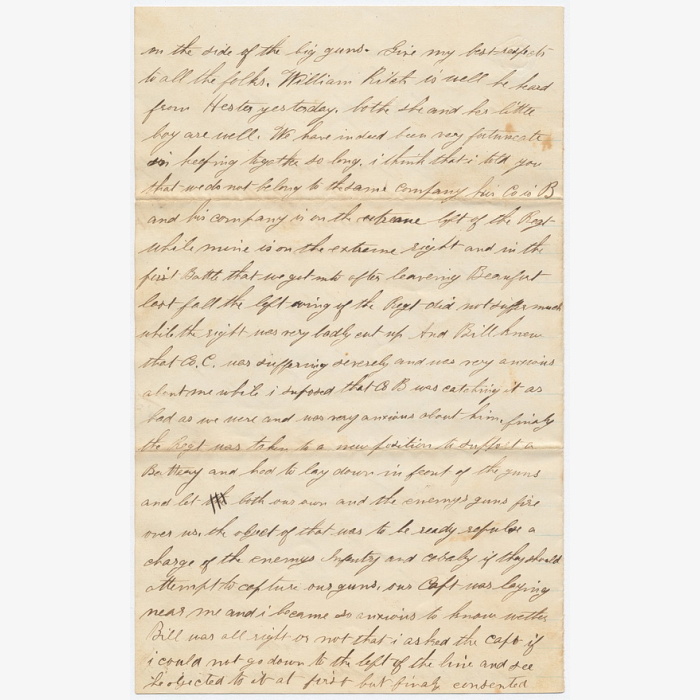 on the side of the big guns. Give my best respects
to all the folks. William is well he heard
from Hester yesterday. both she and his little
boy are well. We have indeed been very fortunate
in keeping togather so long. i think that i told you
that we do not belong to the same company his Co is B
and his company is on the extreme left of the Regt
while mine is on the extreme right and in the
first Battle that we got into after leaveing Beaufort
last fall the left wing of the Regt did not suffer much
while the right was very badly cut up And Bill knew
that Co. C. was suffering severely and was very anxious
about me while i suposed that Co B was catching it as
bad as we were and was very anxious about him. finaly
the Regt was taken to a new position to suport a
Battery and had to lay down in front of the guns
and let both our own and the enemys guns fire
over us. the object of that was to be ready repulse a
charge of the enemys Infantry and cavalry if they should
attempt to capture our guns. our Capt was laying
near me and i became so anxious to know wether
Bill was all right or not that i asked the capt if
i could not go down to the left of the line and see
he objected to it at first but finaly consented